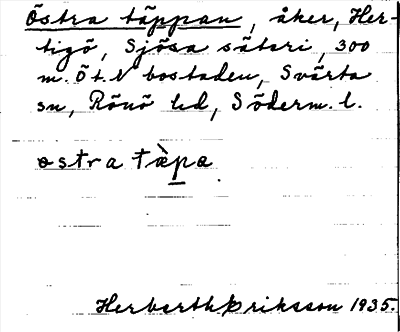 Östra täppan, åker, Her-
tigö, Sjösa säteri, 300
m. Ö t. N bostaden, Svärta
sn, Rönö hd, Söderm. l.
östra tæ̀pa
Herberth Eriksson 1935.